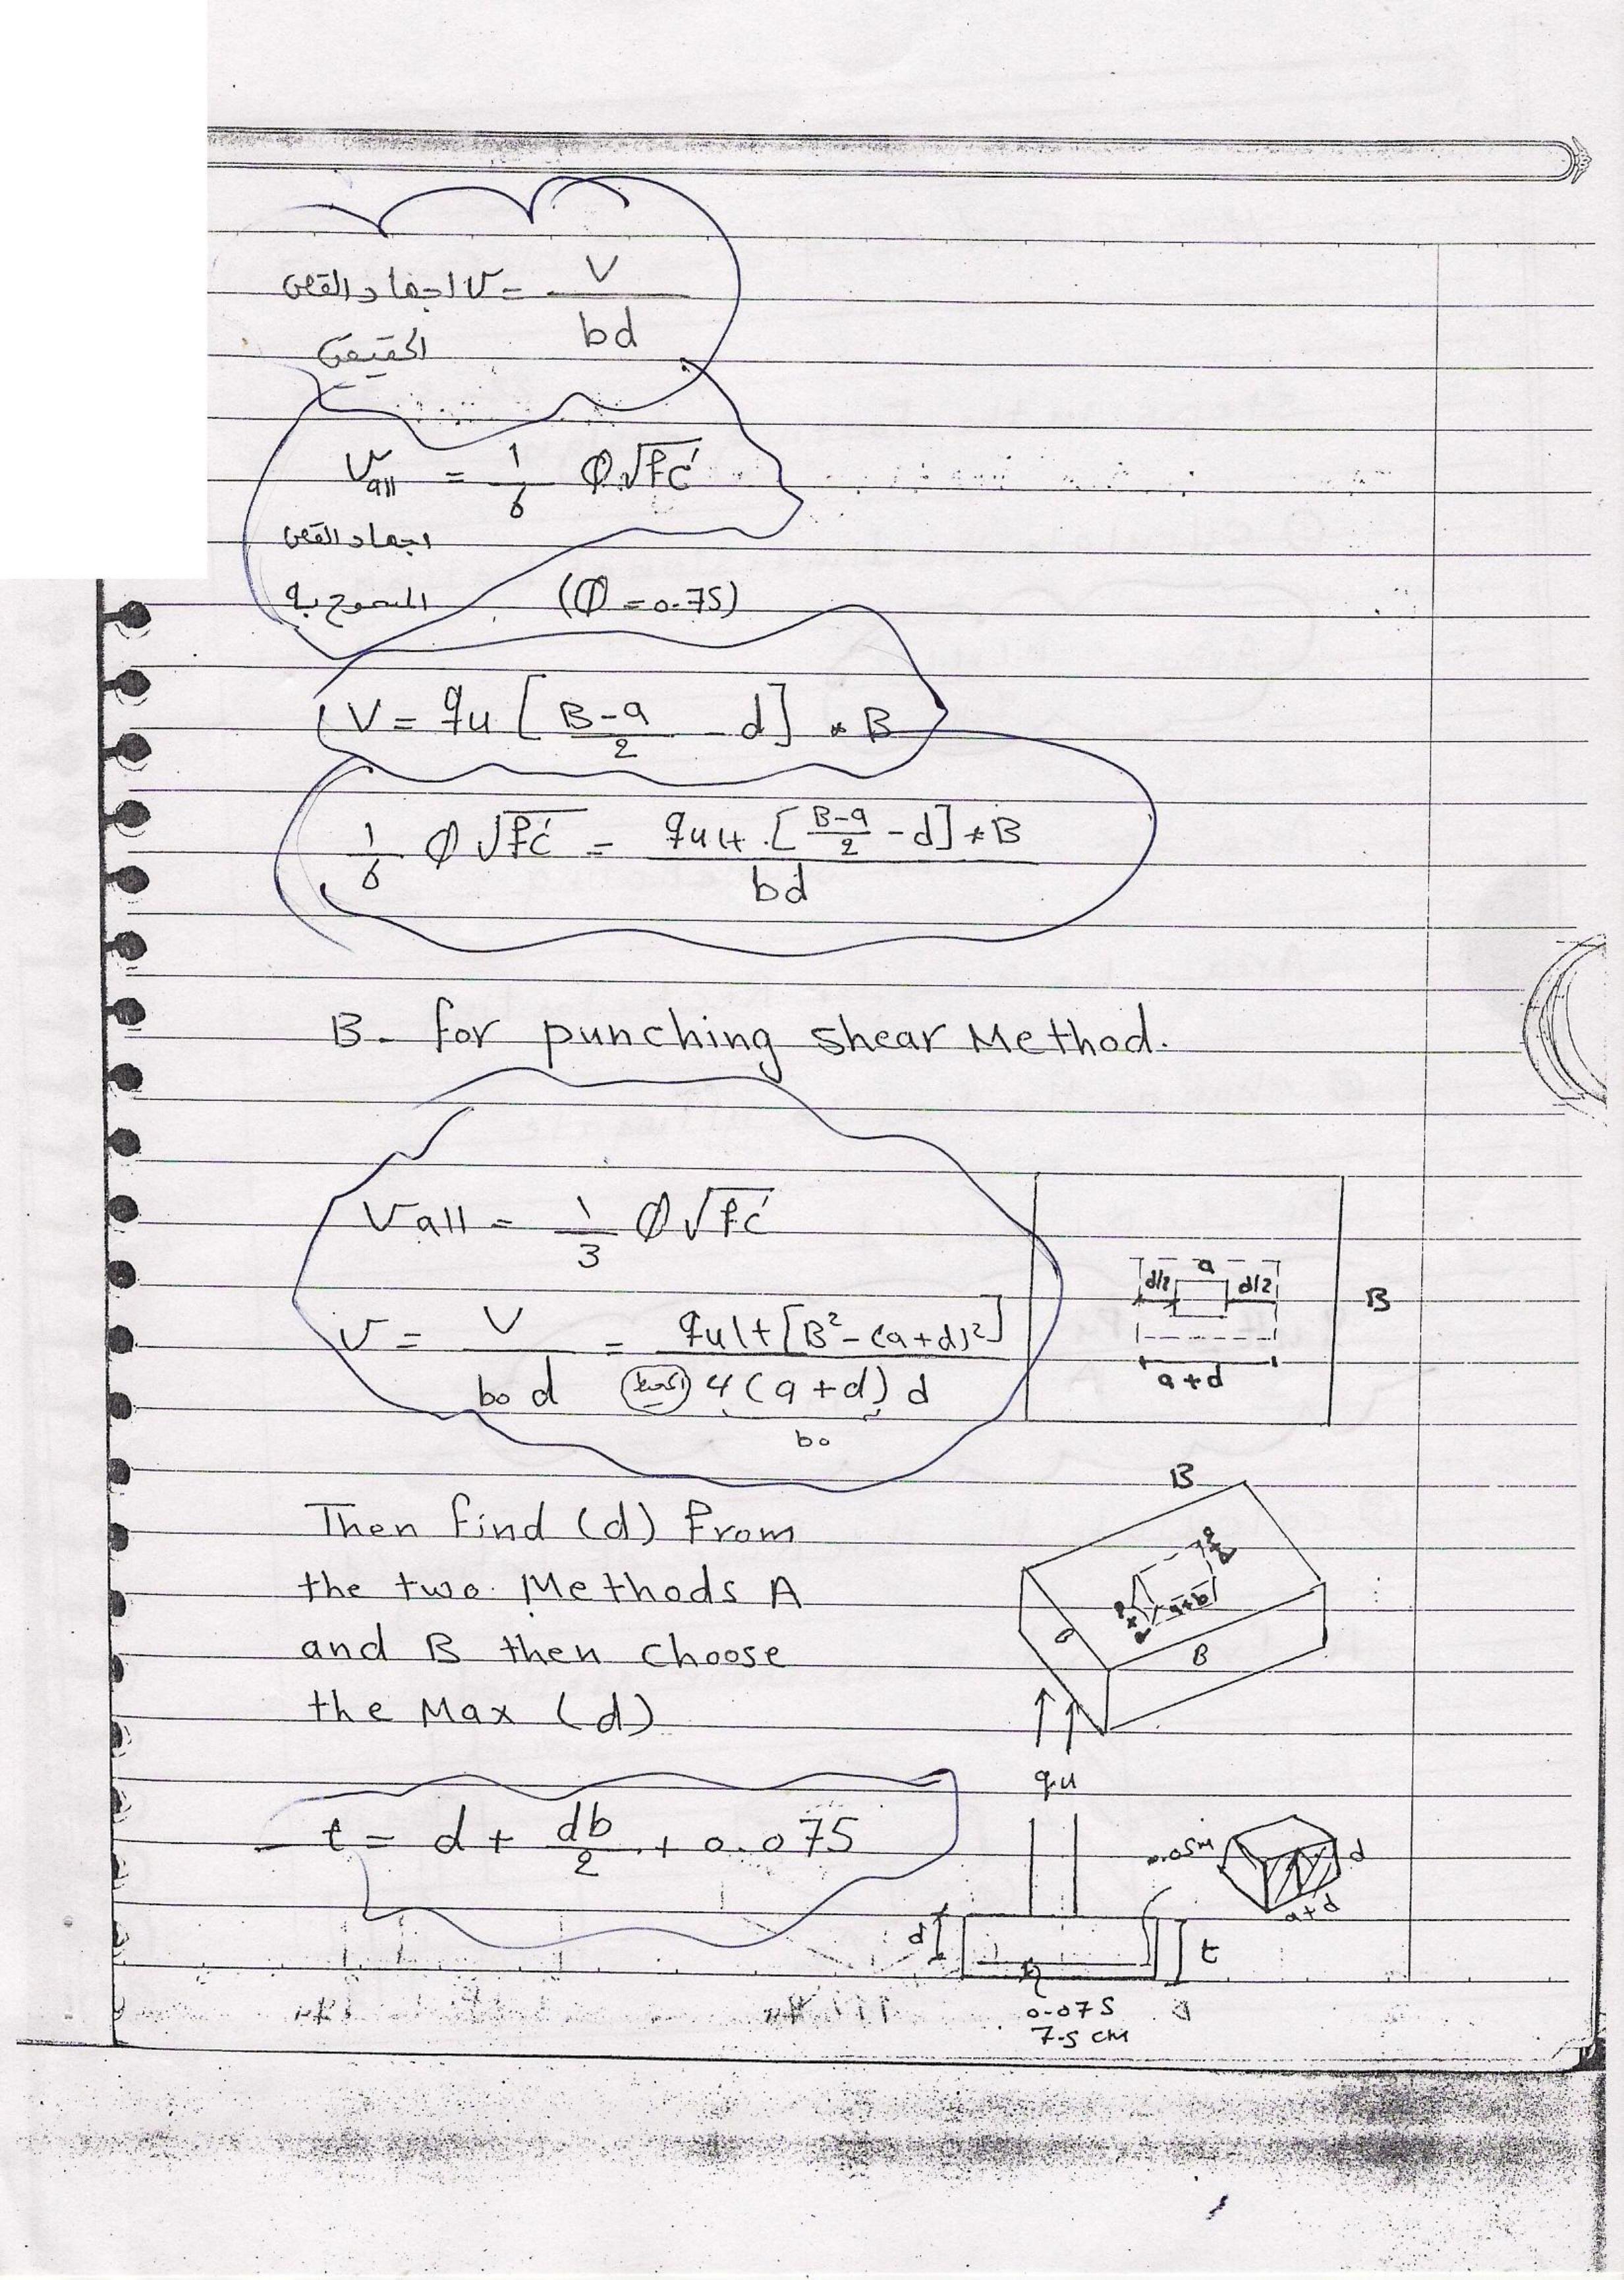 اجهاد القص v = V / bd
الحقيقي
v all = 1/6 Ø √fc'
اجهاد القص
المسموح به (Ø = 0.75)
V = qu [ (B-a)/2 - d ] * B
1/6 Ø √fc' = qult . [ (B-a)/2 - d ] * B / bd
B- for punching shear Method.
Vall = 1/3 Ø √fc'
v = V / bo d = qult [B² - (a+d)²] / المحيط 4 (a+d) d
bo
a
d/2 d/2
B
a+d
Then find (d) from
the two Methods A
and B then choose
the Max (d)
B
a+d
a+b
B
B
qu
t = d + db/2 + 0.075
0.05m
d
a+d
d
t
0.075
7.5 cm